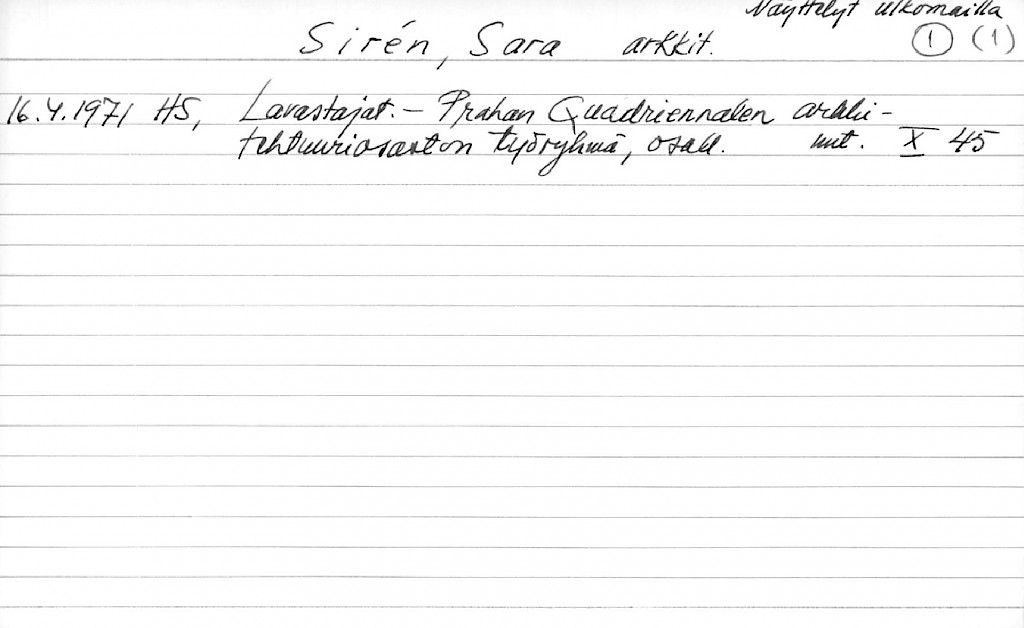 Näyttelyt ulkomailla
Sirén, Sara arkkit. 1 (1)
16.4.1971 HS, Lavastajat. – Prahan Quadriennalen arkki-
tehtuuriosaston työryhmä, osall. uut. X 45